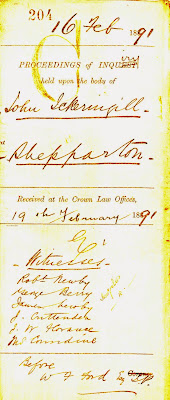 204
16 Feb 1891
PROCEEDINGS OF INQUEST
held upon the body of
John Ickeringill
Shepparton
Received at the Crown Law Offices,
19th February 1891
Witnesses
Robt Newby
George Berry
James Newby
J. Cuttenden
J. W. Florance
Ml Considine
Before
W F Ford Esq J.P.